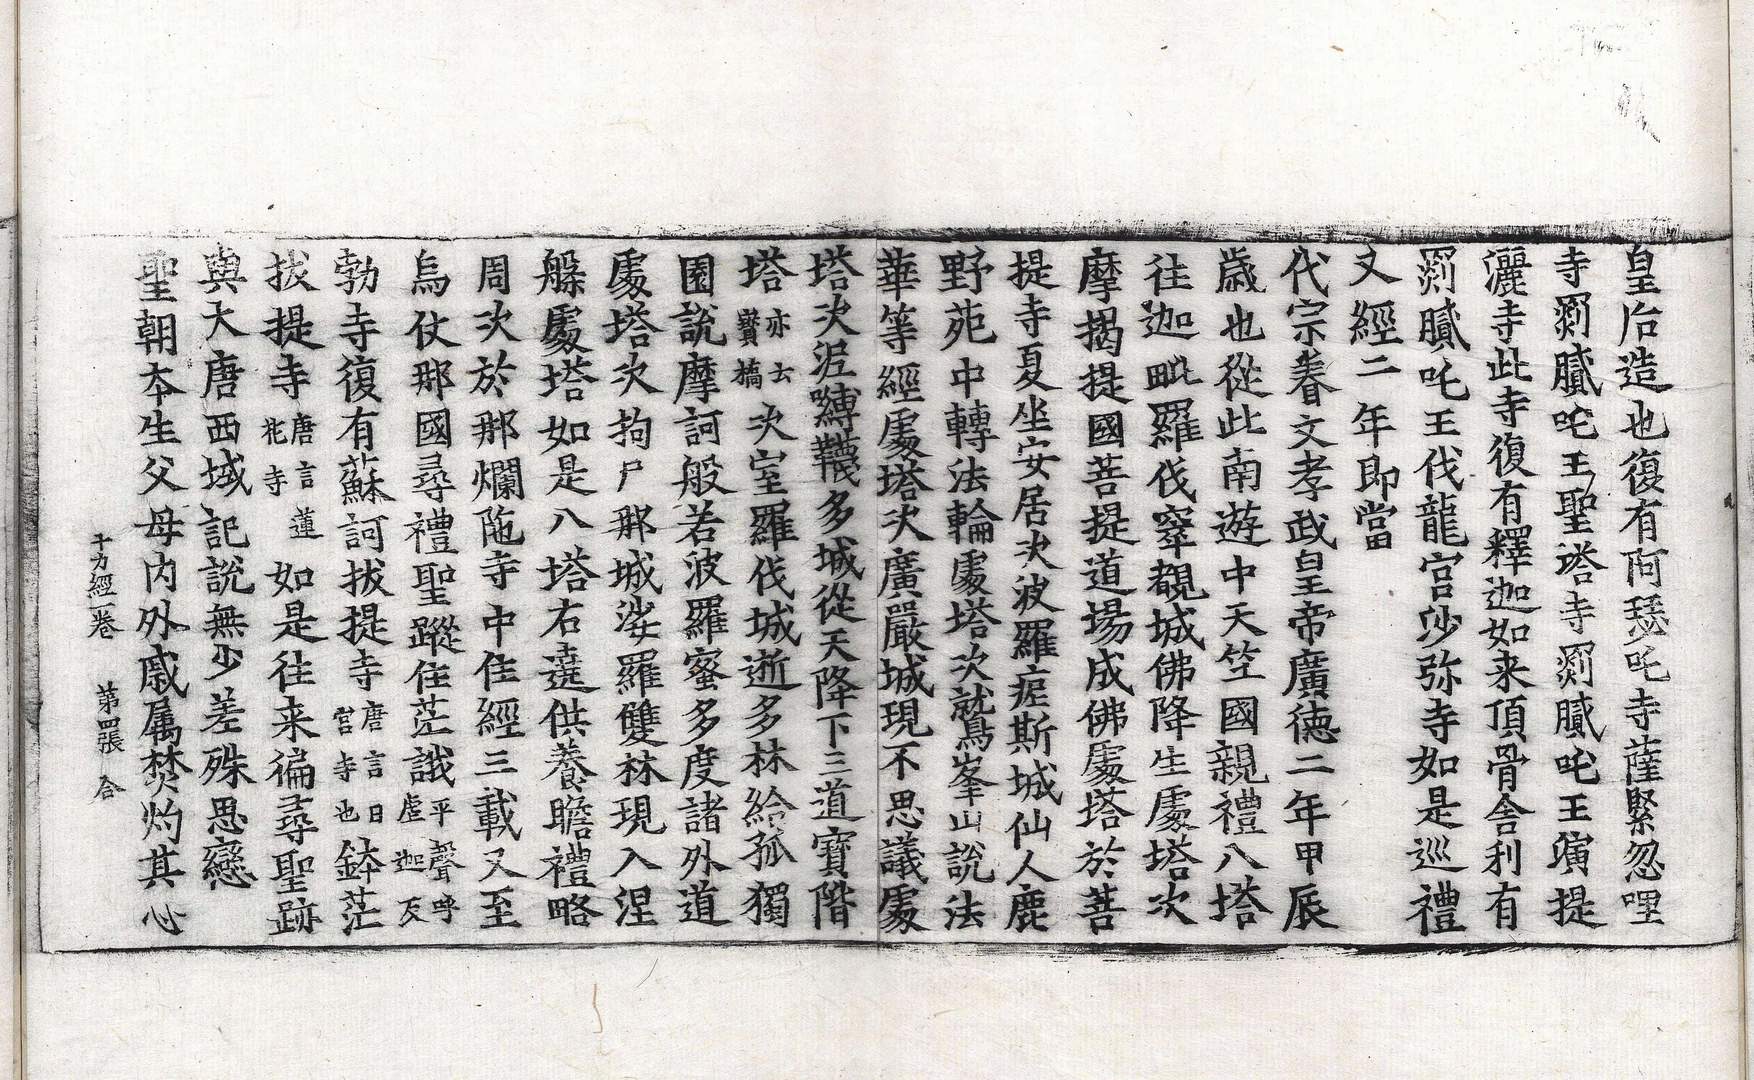 皇后造也復有阿瑟吒寺薩緊忽哩
寺罽膩吒王聖塔寺罽膩吒王演提
灑寺此寺復有釋迦如来頂骨舍利有
罽膩吒王伐龍宮沙弥寺如是巡禮
又經二年即當
代宗睿文孝武皇帝廣德二年甲辰
歲也從此南遊中天竺國親禮八塔
往迦毗羅伐窣覩城佛降生處塔次
摩揭提國菩提道場成佛處塔於菩
提寺夏坐安居次波羅痆斯城仙人鹿
野苑中轉法輪處塔次鷲峯山說法
華等經處塔次廣嚴城現不思議處
塔次泥嚩韈多城從天降下三道寶階
塔亦云寶橋次室羅伐城逝多林給孤獨
園說摩訶般若波羅蜜多度諸外道
處塔次拘尸那城娑羅雙林現入涅
槃處塔如是八塔右遶供養瞻禮略
周次於那爛陁寺中住經三載又至
烏仗那國尋禮聖蹤住茫誐平聲呼虛迦反
勃寺復有蘇訶拔提寺唐言日宮寺也鉢茫
拔提寺唐言蓮花寺如是往来徧尋聖跡
與大唐西域記說無少差殊思戀
聖朝本生父母内外戚属焚灼其心
十力經一卷　第四張　合